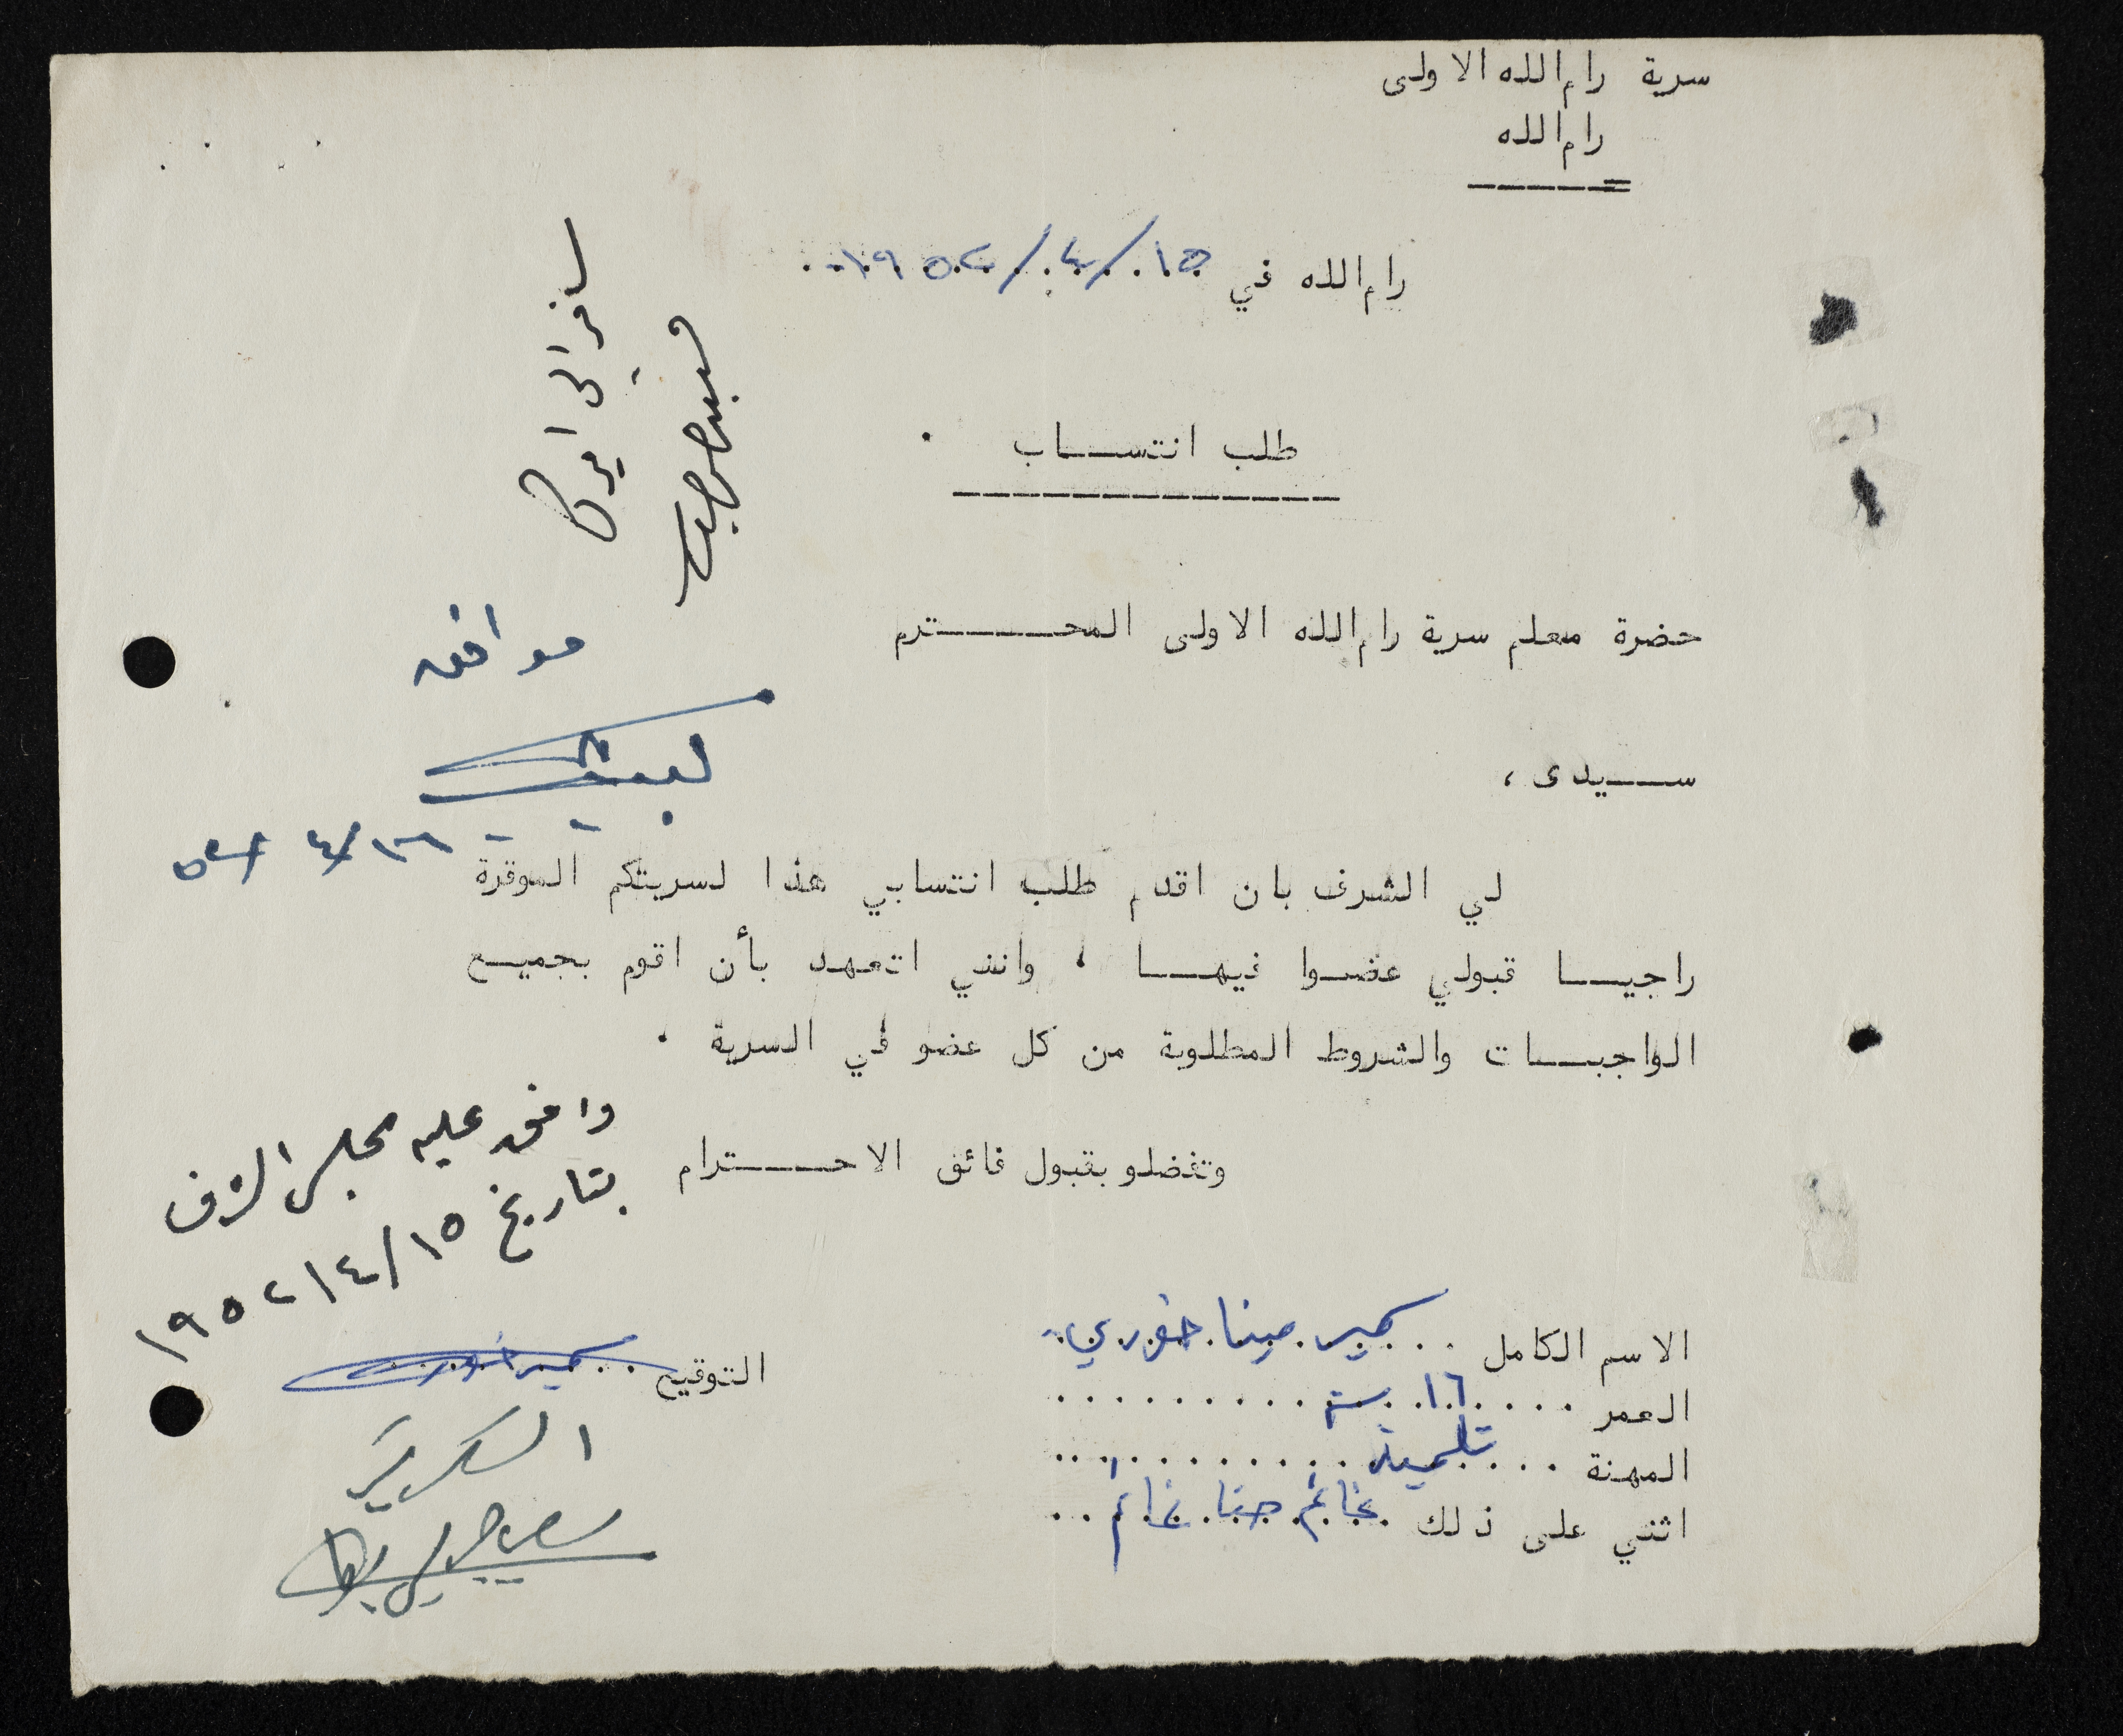 سرية رام الله الاولى
رام الله
رام الله في ١٥/٤/١٩٥٢
طلب انتساب .
سافر الى اميركا
حضرة معلم سرية رام الله الاولى المحترم
موافق
سيدى ،
١٦/٤/٥٢
لي الشرف بان اقدم طلب انتسابي هذا لسريتكم الموقرة
راجيا قبولي عضوا فيها ، وانني اتعهد بأن اقوم بجميع
الواجبات والشروط المطلوبة من كل عضو في السرية .
وتفضلو بقبول فائق الاحترام
وافق عليه مجلس الشرف
بتاريخ ١٥/٤/١٩٥٢
الاسم الكامل سمير مينا خوري
التوقيع سمير خوري
العمر ١٦ سنة
المهنة تلميذ
اثني على ذلك غانم حنا غانم
السكرتير